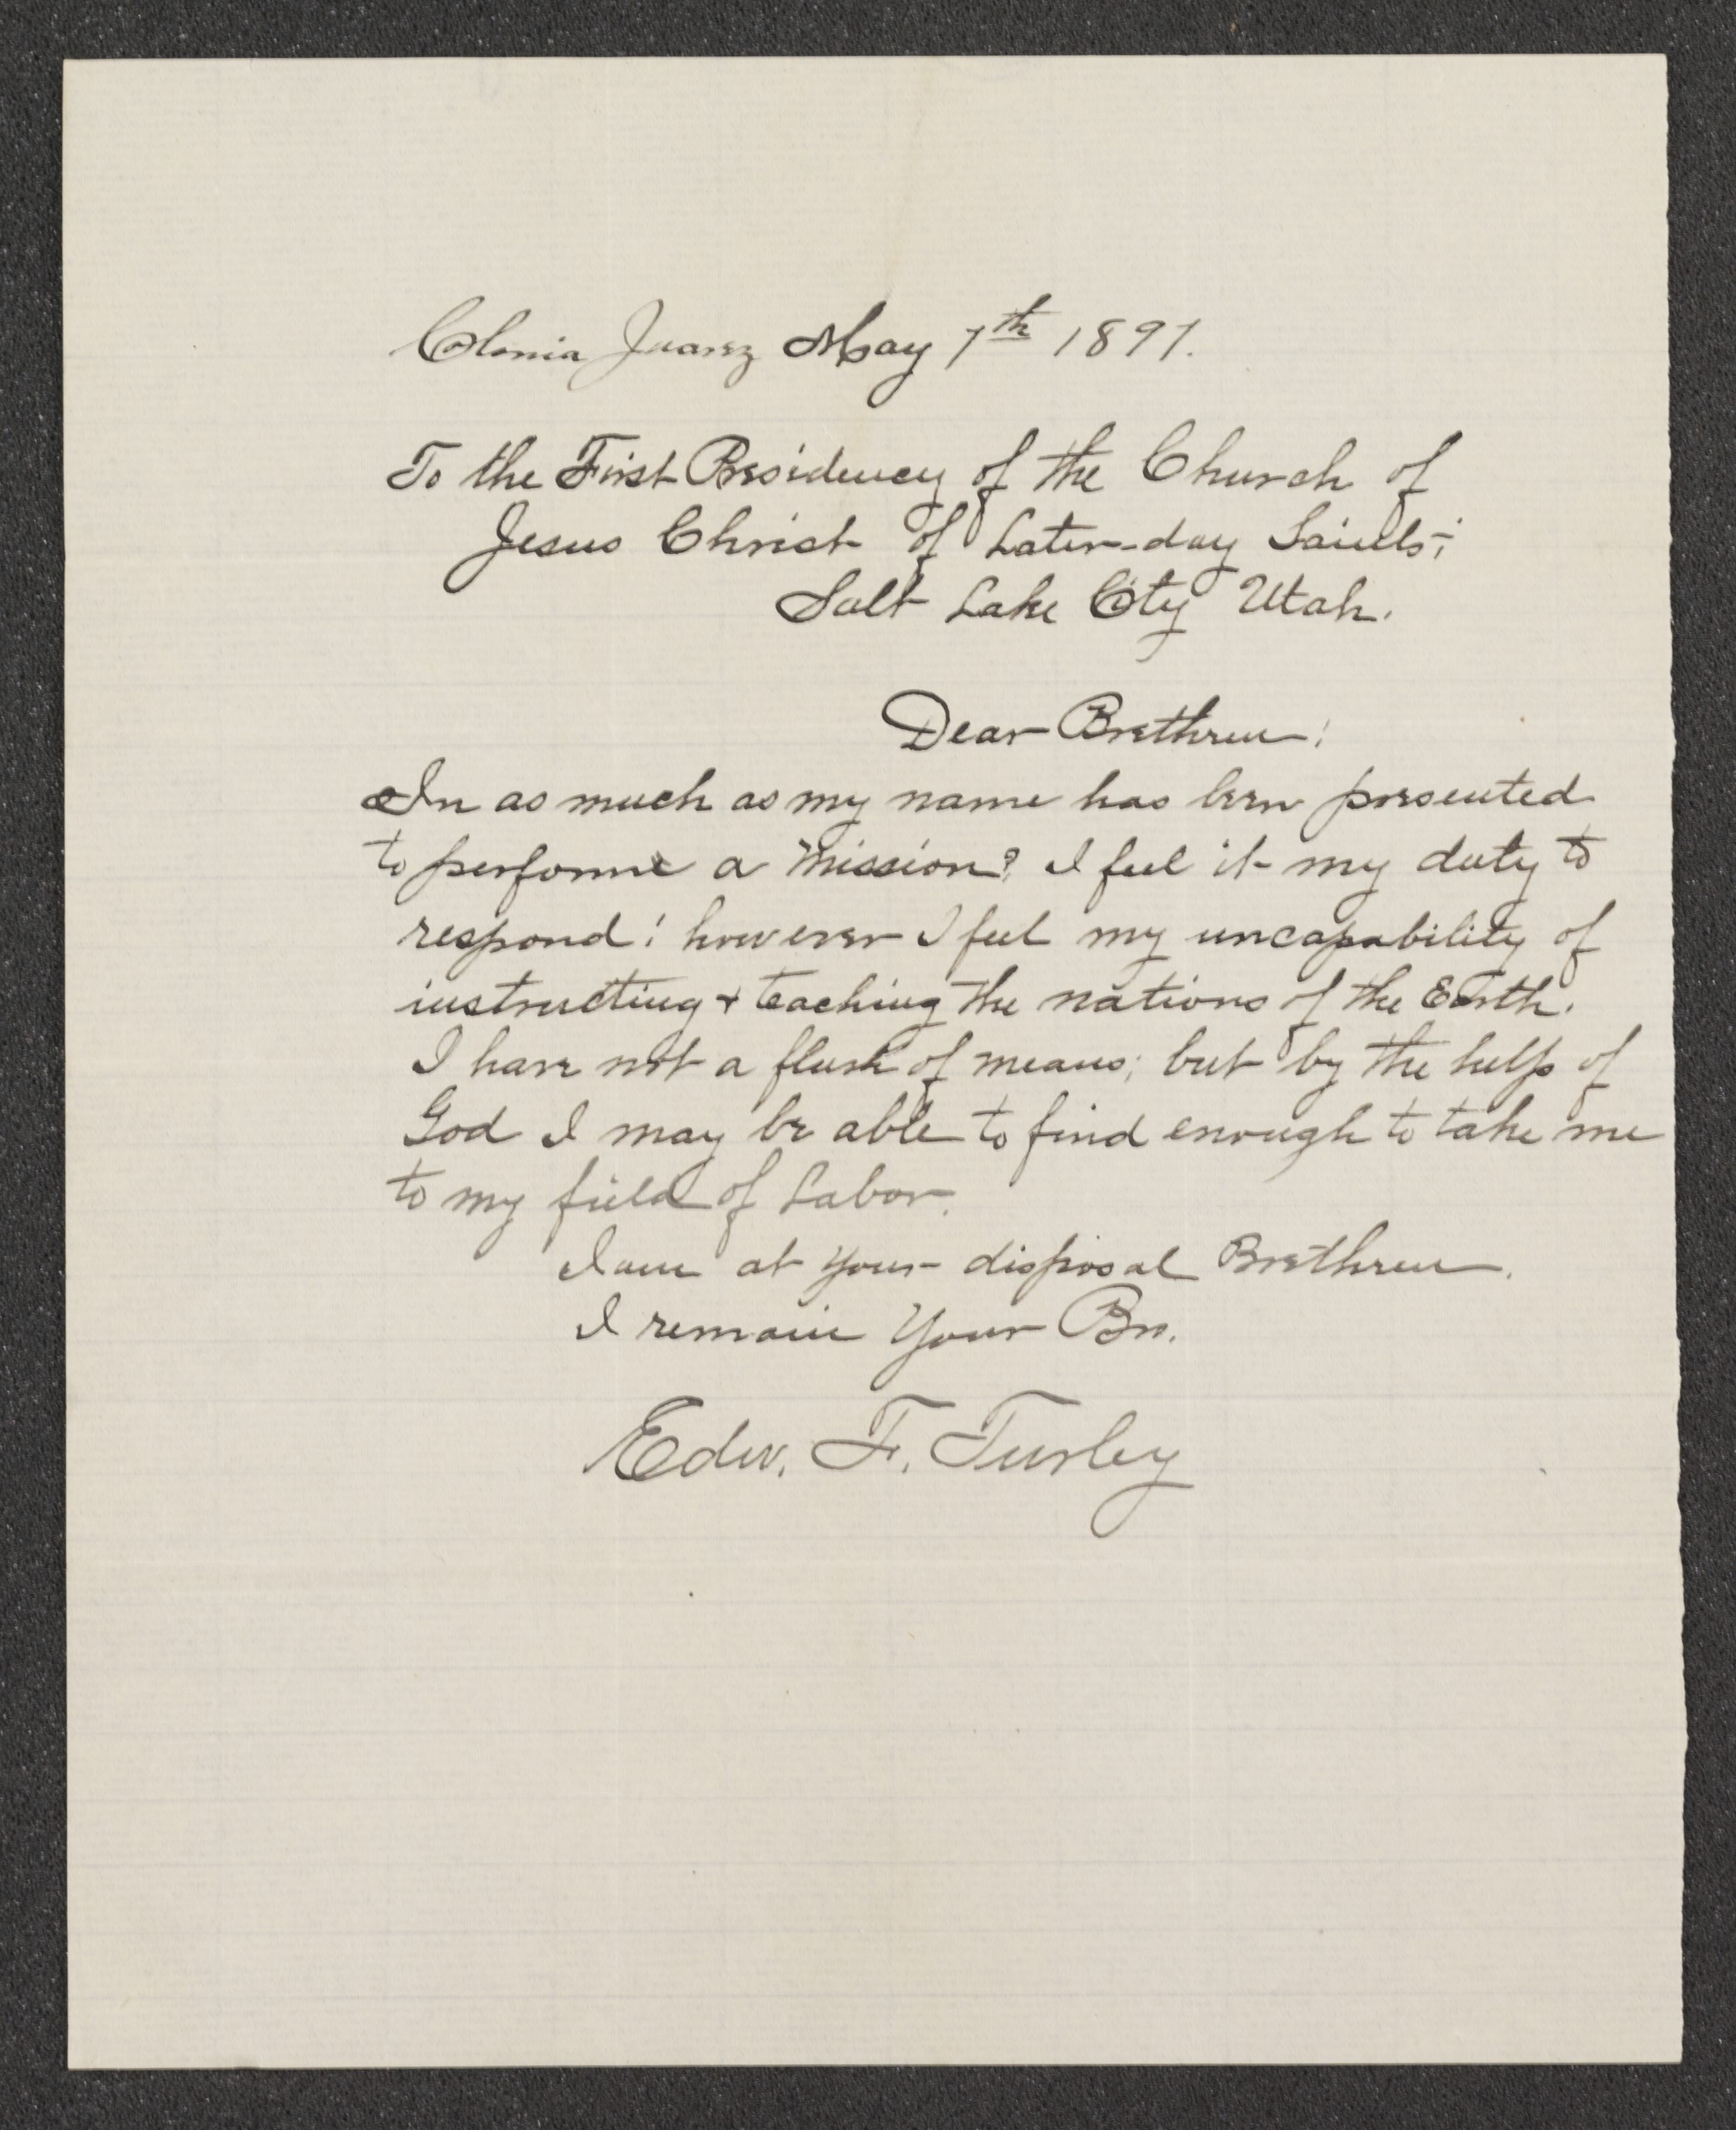 Colonia Juarez May 7th 1897.
To the First Presidency of the Church of
Jesus Christ of Later-day Saints;
Salt Lake City Utah.
Dear Brethren:
In as much as my name has been presented
to performe a mission? I feel it my duty to
respond! however I feel my uncapability of
instructing + teaching the nations of the Earth.
I have not a flush of means; but by the help of
God I may be able to find enough to take me
to my field of Labor.
I am at your disposal Brethren.
I remain Your Bro.
Edw. F. Turley